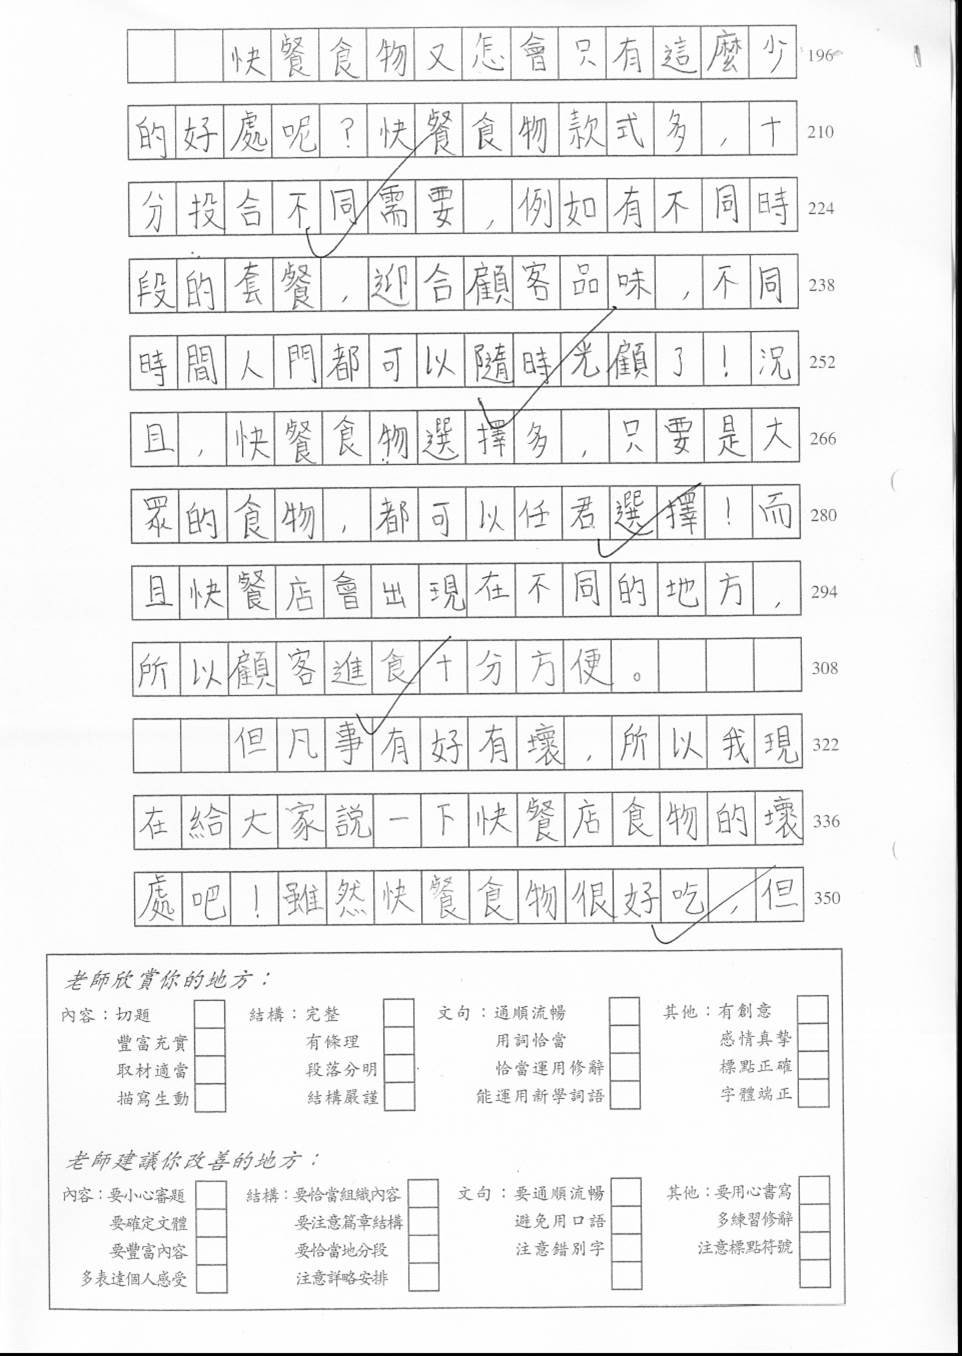 快餐食物又怎會只有這麼少 196
的好處呢？快餐食物款式多，十 210
分投合不同需要，例如有不同時 224
段的套餐，迎合顧客品味，不同 238
時間人門都可以隨時光顧了！況 252
且，快餐食物選擇多，只要是大 266
眾的食物，都可以任君選擇！而 280
且快餐店會出現在不同的地方， 294
所以顧客進食十分方便。 308
但凡事有好有壞，所以我現 322
在給大家說一下快餐店食物的壞 336
處吧！雖然快餐食物很好吃，但 350
老師欣賞你的地方：
內容：切題 結構：完整 文句：通順流暢 其他：有創意
豐富充實 有條理 用詞恰當 感情真摯
取材適當 段落分明 恰當運用修辭 標點正確
描寫生動 結構嚴謹 能運用新學詞語 字體端正
老師建議你改善的地方：
內容：要小心審題 結構：要恰當組織內容 文句：要通順流暢 其他：要用心書寫
要確定文體 要注意篇章結構 避免用口語 多練習修辭
要豐富內容 要恰當地分段 注意錯別字 注意標點符號
多表達個人感受 注意詳略安排